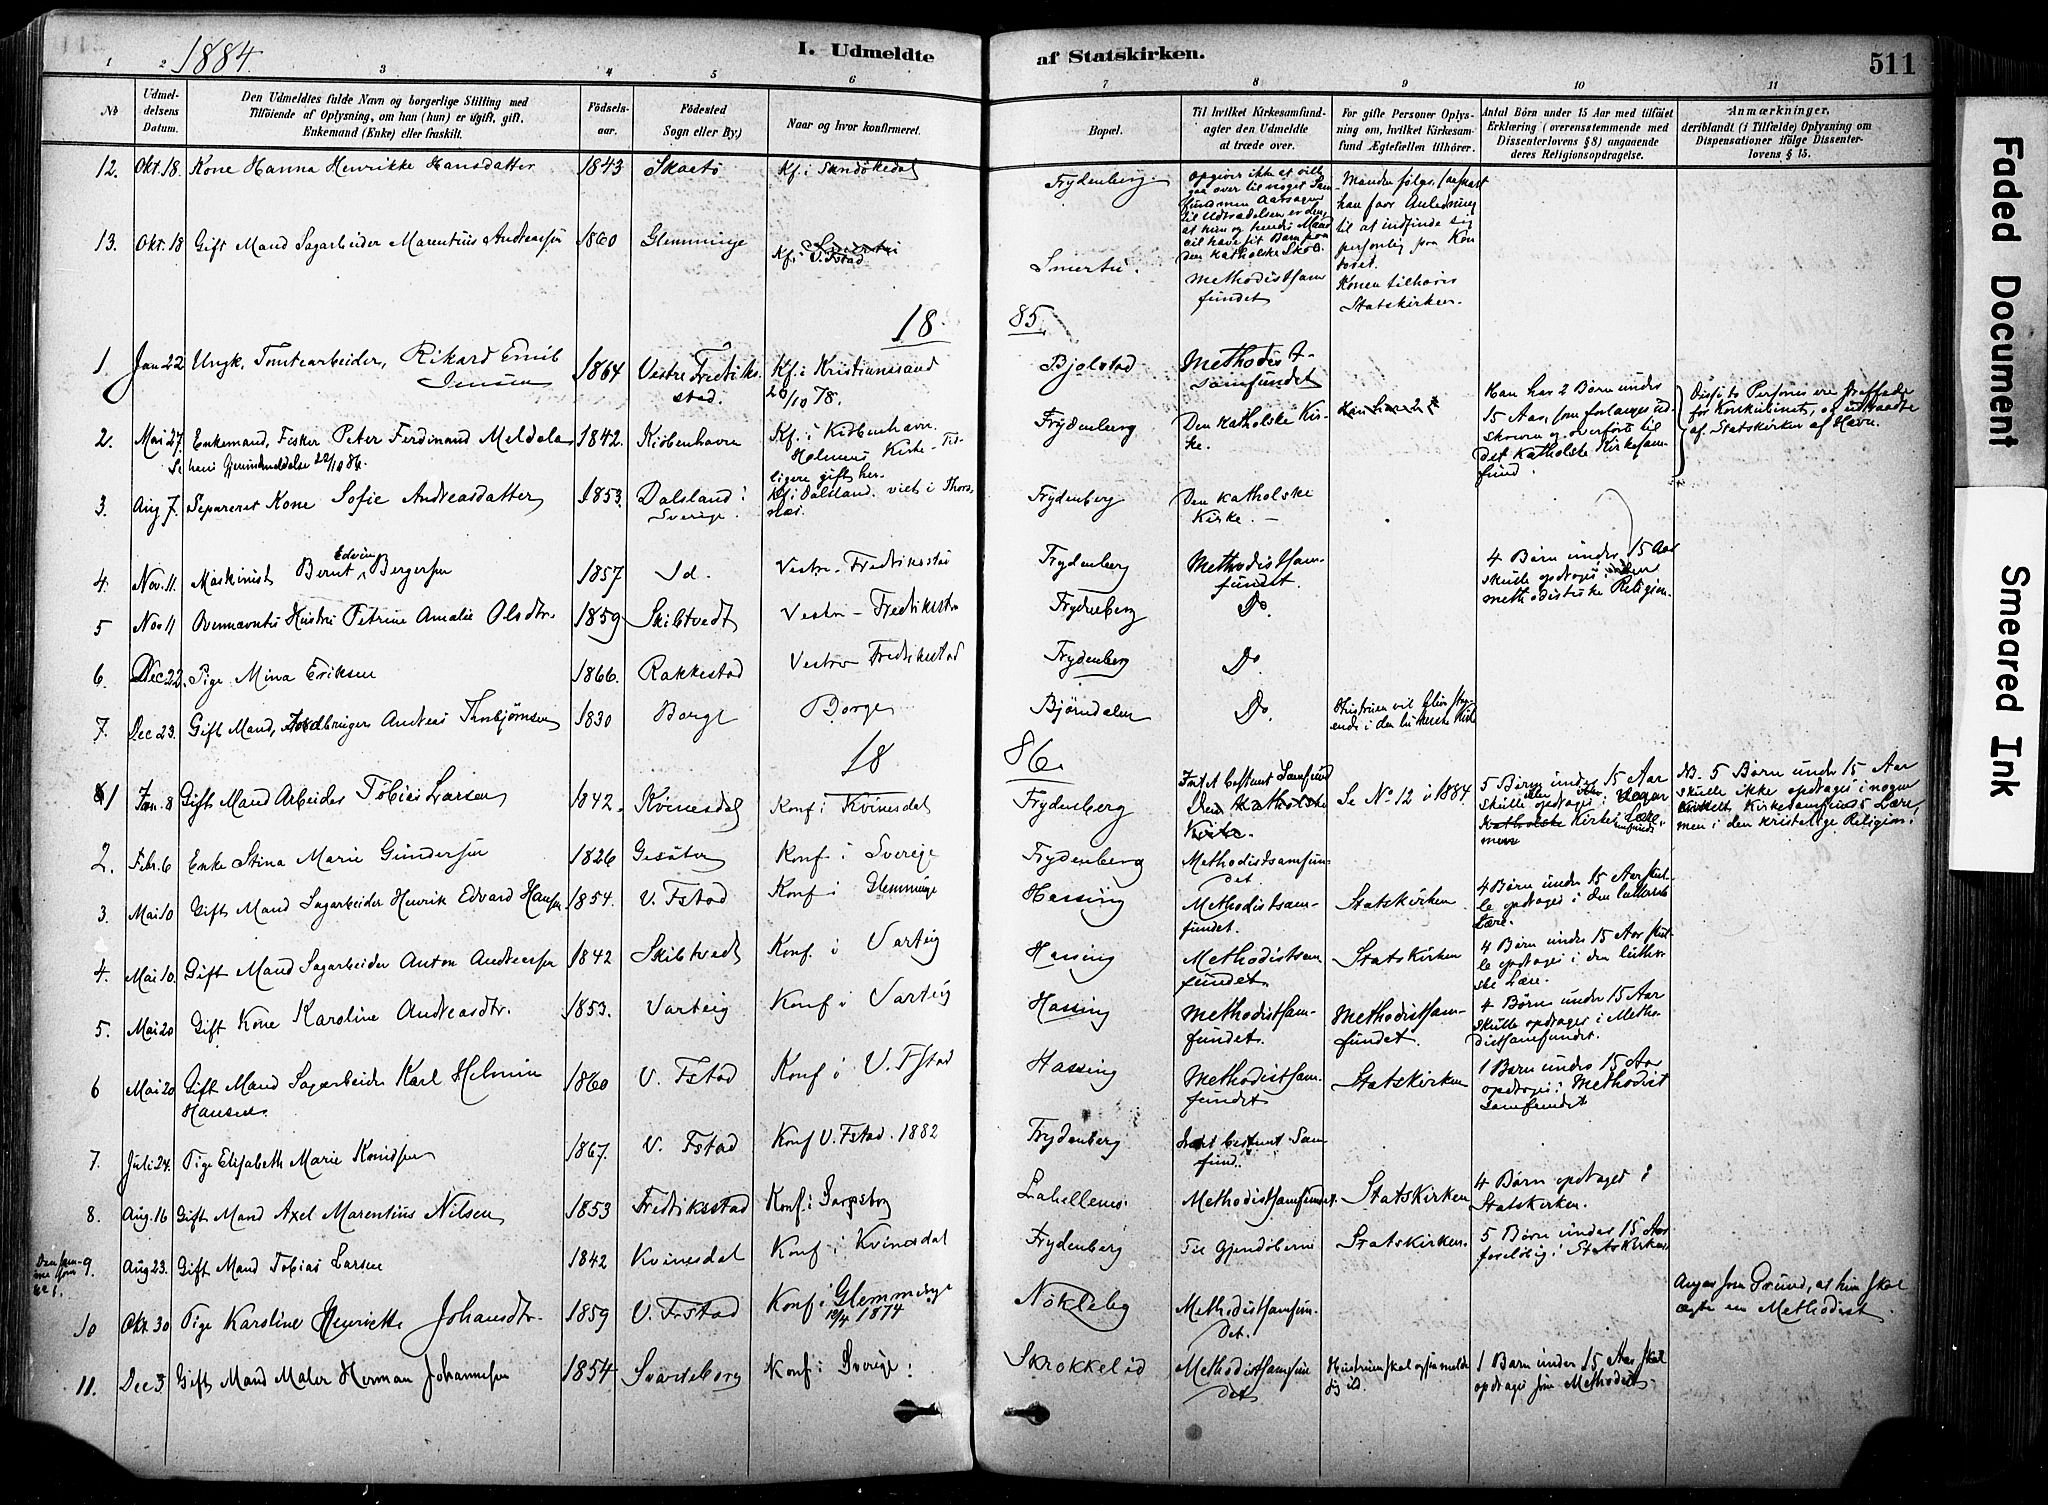 1884.
I. Udmeldte af Statskirken.
511
1 2 3 4 5 6 7 8 9 10 11
№
Udmel-
delsens
Datum.
Den Udmeldtes fulde Navn og borgerlige Stilling med
Tilföiende af Oplysning, om han (hun) er ugift, gift,
Enkemand (Enke) eller fraskilt.
Födsels-
aar.
Födested
Sogn eller By.)
Naar og hvor konfirmeret.
Bopæl.
Til hvilket Kirkesamfund-
agter den Udmeldte
at træde over.
For gifte Personer Oplys-
ning om, hvilket Kirkesam-
fund Ægtefællen tilhörer.
Antal Börn under 15 Aar med tilföiet
Erklæring (overensstemmende med
Dissenterlovens § 8) angaaende
deres Religionsopdragelse.
Anmærkninger,
deriblandt (i Tilfælde) Oplysning om
Dispensationer ifölge Dissenter-
lovens § 15.
12. Okt. 18. Kone Hanna Henrikke Hansdatter 1843 Skaatö Kf. i Sandökedal Frydenberg.
opgiver ikke at ville
gaa over til noget Sam
fund men Aarsagen
til Udtrædelsen er den,
at hun og hendes Mand
vil have sit Barn paa
den katholske Skole.
Manden følge, saasnart
han faar Anledning
til at indfinde sig
personlig paa Kon
toret.
13. Okt. 18 Gift Mand Sagarbeider Marentius Andreassen 1860 Glemminge Kf. i V. Fstad Smertu.
Methodistsam
fundet
Konen tilhører
Statskirken.
18 85.
1. Jan 22 Ungk. Tomtearbeider, Rikard Emil
Jensen 1864 Vestre Fredriks
stad. Kf. i Kristianssand
20/10 78. Bjølstad Methodist-
samfundet
2. Mai 27. Enkemand, Fisker Peter Ferdinand Meldola 1842. Kiöbenhavn Kf. i Kiöbenhavn.
Holmens Kirke - Tid-
ligere gift her. Frydenberg Den katholske Kir-
ke.
Se hans Gjenindmeldelse 22/10 86.
Han har 2 Børn under
15 Aar, som forlanges ud-
skreven og overført til
det katholske Kirkesam-
fund.
Disse to Personer ere straffede
for Konkubinat, og udtraadte
af Statskirken af Havn.
3. Aug 7. Separeret Kone Sofie Andreasdatter 1853. Dalsland i
Sverige. Kf. i Dalsland. viet i Thors
næs. Frydenberg Den katholske
Kirke. —
4. Nov. 11. Maskinist Bernt Edvin Bergersen 1857 Id. Vestre Fredriksstad Frydenberg Methodistsam-
fundet. 4 Børn under 15 Aar
skulle opdrages i den
methodistiske Religion.
5 Nov 11 Ovennævntes Hustru Petrine Amalie Olsdtr. 1859 Skibtvedt Vestre Fredriksstad Frydenberg Do.
6. Dec 22. Pige Mina Eriksen 1866. Rakkestad Vestre Fredriksstad Frydenberg Do.
7. Dec 23. Gift Mand, Jordbruger Andreas Thorbjørnsen 1830 Borge Borge Björndalen Do. Hustruen vil blive stag-
ende i den lutherske Kirke
18 86.
1 Jan. 8 Gift Mand Arbeider Tobias Larsen 1842. Kvinesdal Konf. i Kvinesdal Frydenberg
Intet bestemt Samfund
Den Katholske
Kirke. Se No 12 i 1884
5 Børn under 15 Aar
skulle opdrages i
Katholske Kirkes Lære,
men
NB. 5 Børn under 15 Aar
skulle ikke opdrages i nogen
enkelt Kirkesamfunds Lære
men i den kristelige Religion.
2. Febr. 6 Enke Stina Marie Gundersen 1826 Gesäter Konf. i Sverige Frydenberg Methodistsamfun-
det.
3. Mai 10 Gift Mand Sagarbeider Henrik Edvard Hansen 1854. V. Fstad Konf i Glemminge Hassing Methodistsam-
fundet. Statskirken 4 Børn under 15 Aar skul-
le opdrages i den lutherske
Lære.
4. Mai 10. Gift Mand Sagarbeider Anton Andreassen 1842 Skibtvedt Konf. i Varteig Hassing Methodistsam-
fundet. Statskirken 4 Børn under 15 Aar skul-
le opdrages i den luther
ske Lære.
5. Mai 20 Gift Kone Karoline Andreasdtr. 1853. Varteig Konf i Varteig Hassing Methodistsam-
fundet. Methodistsam-
fundet. 4 Børn under 15 Aar
skulle opdrages i Metho
distsamfundet.
6 Mai 20 Gift Mand Sagarbeider Karl Helmin
Hansen. 1860 V. Fstad Konf i V. Fstad Hassing Methodistsam-
fundet Statskirken 1 Barn under 15 Aar
opdrages i Methodist
samfundet
7. Juli 24. Pige Elisabeth Marie Knudsen 1867. V. Fstad Konf V. Fstad. 1882 Frydenberg Intet bestemt Sam-
fund.
8. Aug. 16 Gift Mand Axel Marentius Nilsen 1853 Fredriksstad Konf. i Sarpsborg Labellenes. Methodistsamfundet. Statskirken 4 Børn opdrages i
Statskirken.
Den sam-
me som
No 1.
9. Aug 23. Gift Mand Tobias Larsen 1842 Kvinesdal Konf i Kvinesdal Frydenberg Til Gjendöberne Statskirken. 5 Børn under 15 Aar
foreløbig i Statskirken
10 Okt. 30 Pige Karoline Henriette Johansdtr. 1859 V. Fstad Konf i Glemminge
12/4 1874 Nökleby Methodistsamfun-
det. Angav som Grund, at hun skal
ægte en Methodist.
11. Dec 3. Gift Mand Maler Herman Johannesen 1854. Svarteborg Konf i Sverige. Skrokkelid Methodistsamfun
det Hustruen skal ogsaa melde
sig ud. 1 Barn under 15 Aar skal
opdrages som Methodist.
Faded Document
Smeared Ink